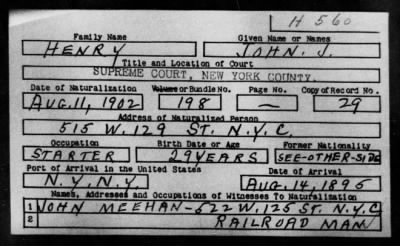 H 560
Family Name Given Name or Names
HENRY JOHN. J.
Title and Location of Court
SUPREME COURT, NEW YORK COUNTY.
Date of Naturalization Volume or Bundle No. Page No. Copy of Record No.
AUG. 11, 1902 198 — 29
Address of Naturalized Person
515 W. 129 ST. N.Y.C.
Occupation Birth Date or Age Former Nationality
STARTER 29 YEARS SEE-OTHER-SIDE
Port of Arrival in the United States Date of Arrival
N.Y. N.Y. AUG. 14, 1895
Names, Addresses and Occupations of Witnesses To Naturalization
1 JOHN MEEHAN-522 W. 125 ST. N.Y.C
2 RAILROAD MAN